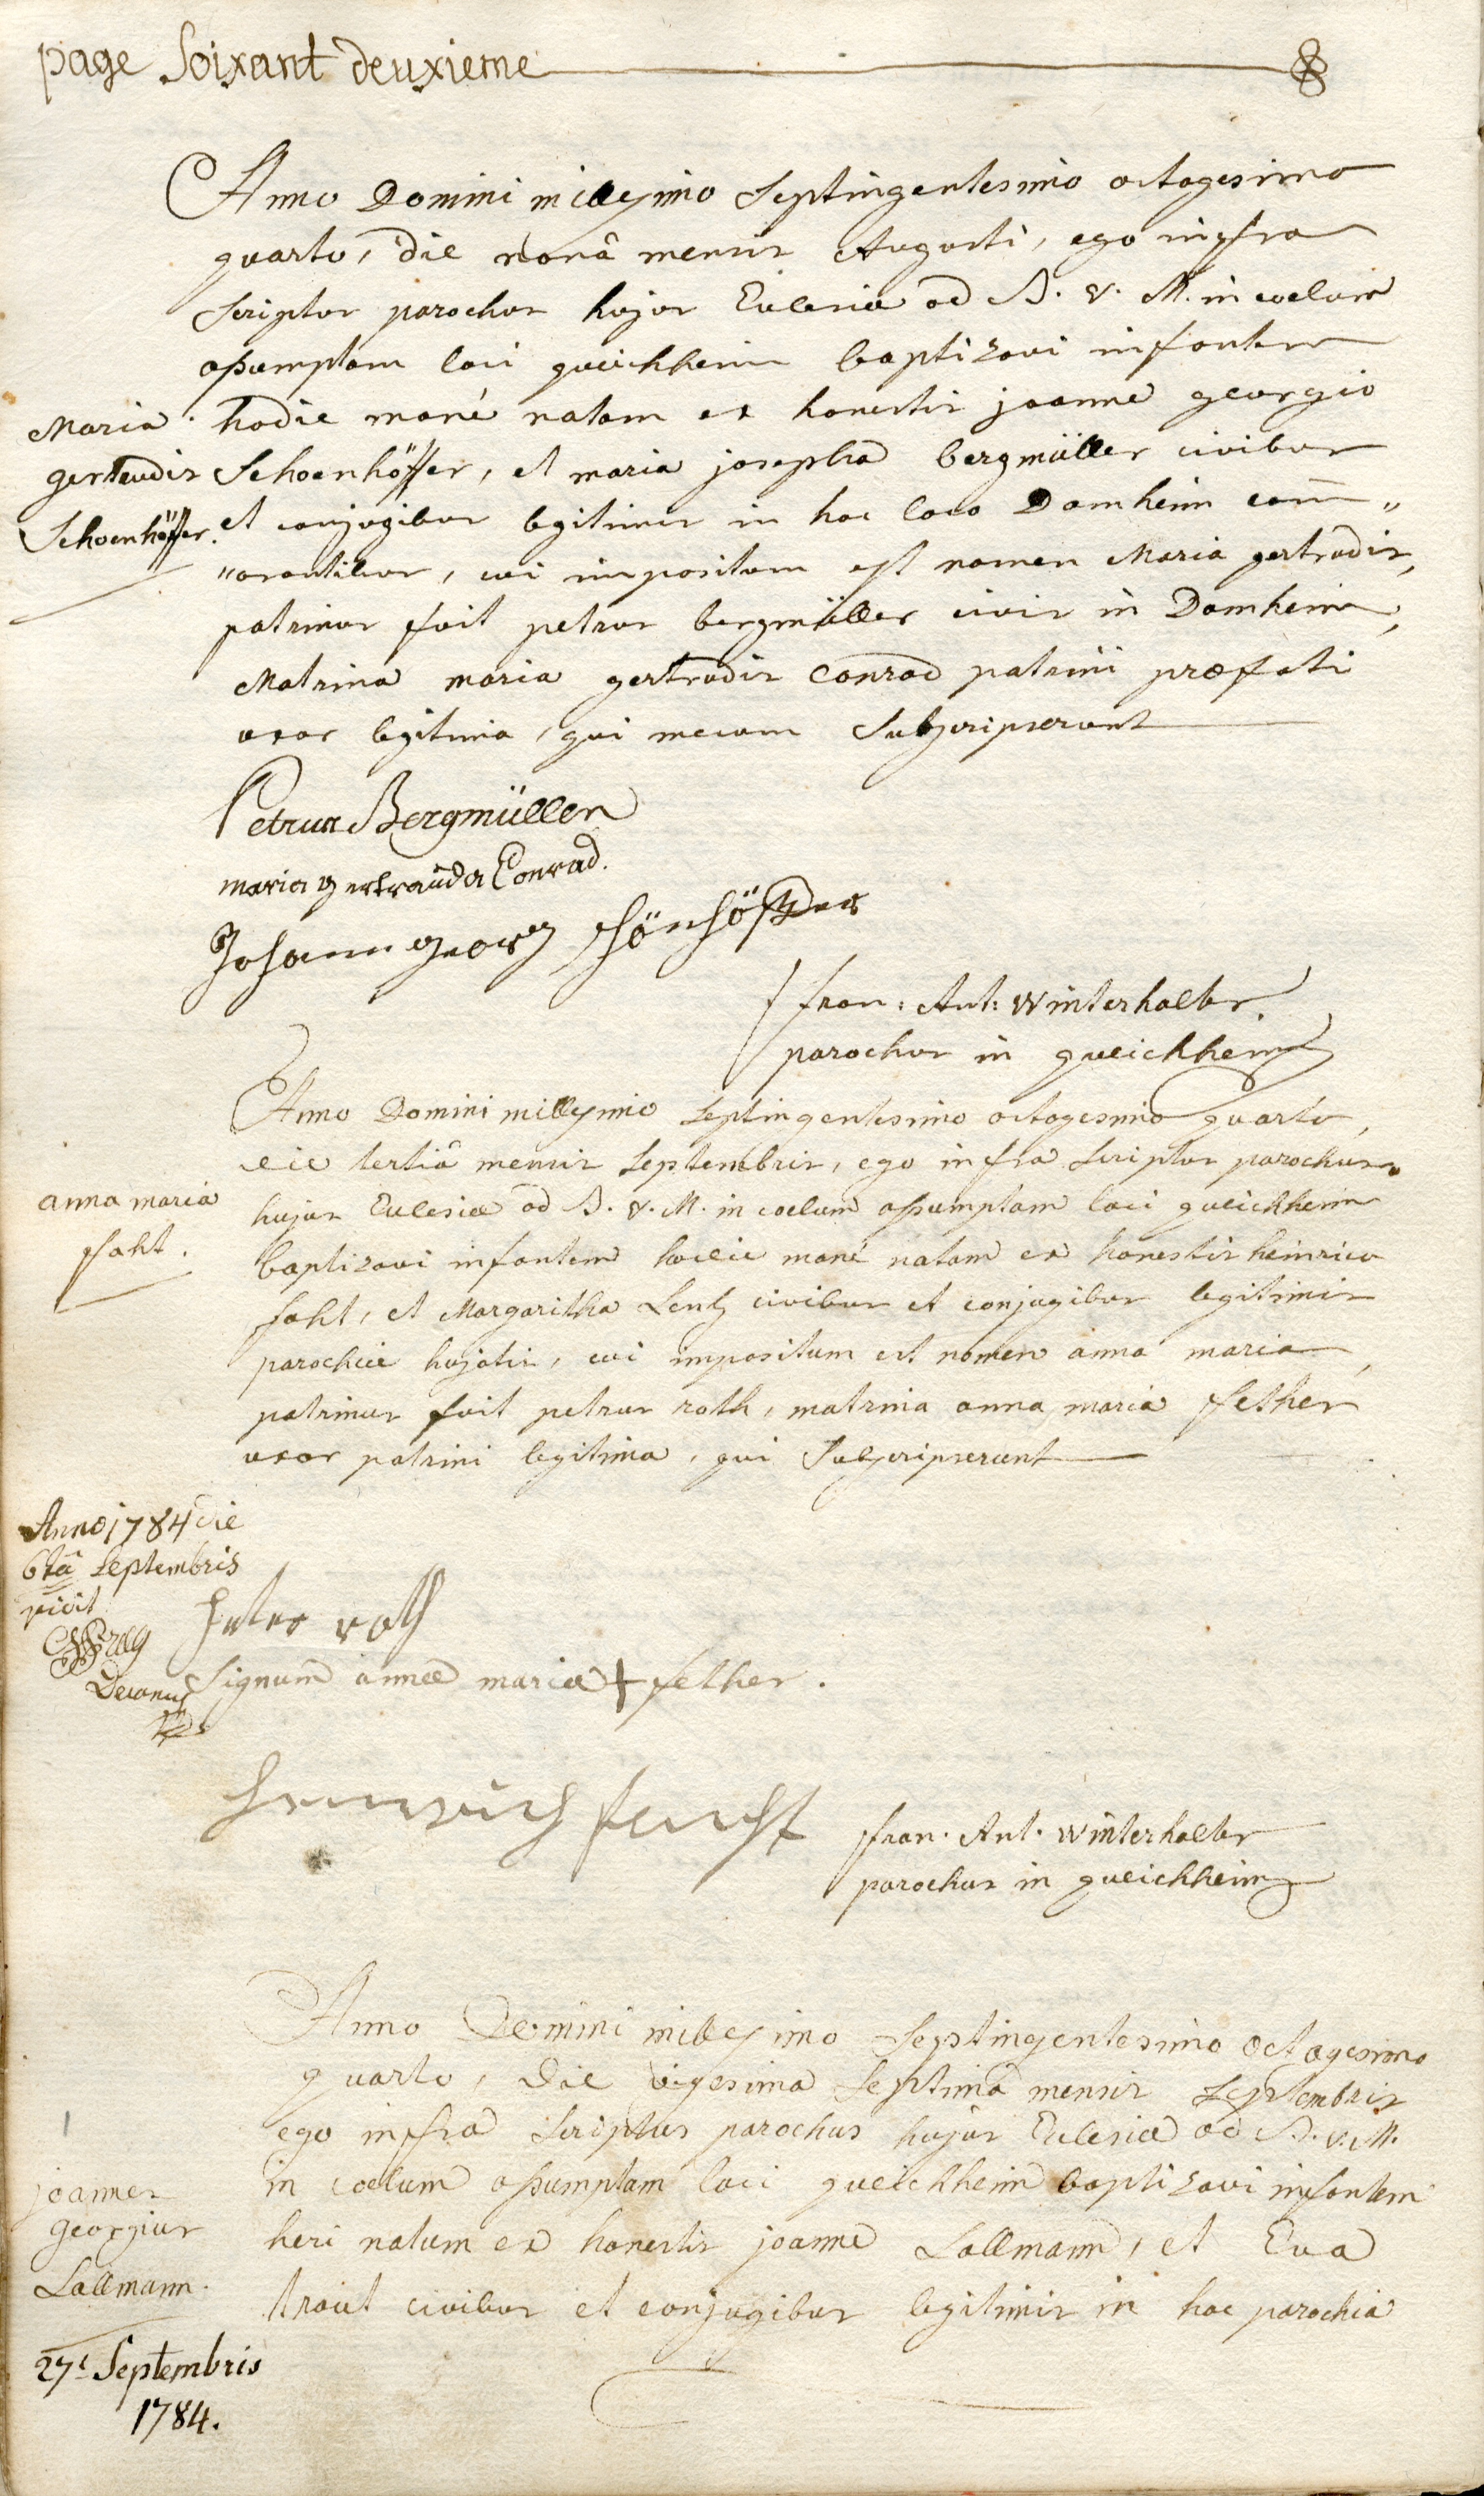 page Soixant deuxieme
Anno Domini millesimo Septingentesimo octogesimo
quarto, die nonâ mensis Augusti, ego infra
Scriptus parochus hujus Ecclesiæ ad B. V. M. in coelum
assumptam loci queichheim baptizavi infantem
Maria
gertrudis
Schoenhöffer.
hodie mané natam ex honestis joanne georgio
Schoenhöffer, et maria josepha bergmüller civibus
et conjugibus legitimis in hoc loco Damheim com̄ „
„orantibus, cui impositum est nomen Maria gertrudis,
patrinus fuit petrus bergmüller civis in Damheim,
Matrina maria gertrudis Conrad patrini præfati
uxor legitima, qui mecum Subscripserunt
Petrus Bergmüller
maria gertrauda Conrad.
Johann georg schönhöffer
fran: Ant: Winterhalter.
parochus in queichheim
Anno Domini millesimo Septingentesimo octogesimo quarto,
die tertiâ mensis Septembris, ego infra Scriptus parochus
anna maria
faht.
hujus Ecclesiæ ad B. V. M. in coelum assumptam loci queichheim
baptizavi infantem hodie mané natam ex honestis heinrico
faht, et Margaritha Lentz civibus et conjugibus legitimis
parochiæ hujatis, cui impositum est nomen anna maria,
patrinus fuit petrus roth, matrina anna maria fether
uxor patrini legitima, qui Subscripserunt
Anno 1784 die
6tâ Septembris
vidit
Decanus
Peter roth
Signum annæ mariæ + fether.
Heinrich
fran. Ant. Winterhalter
parochus in queichheim
Anno Domini millesimo Septingentesimo octogesimo
quarto, Die vigesima Septimâ mensis Septembris
ego infra Scriptus parochus hujus Ecclesiæ ad B. V. M.
in coelum assumptam loci queichheim baptizavi infantem
joannes
georgius
Lallmann.
27â Septembris
1784.
heri natum ex honestis joanne Lallmann, et Eva
traut civibus et conjugibus legitimis in hac parochia